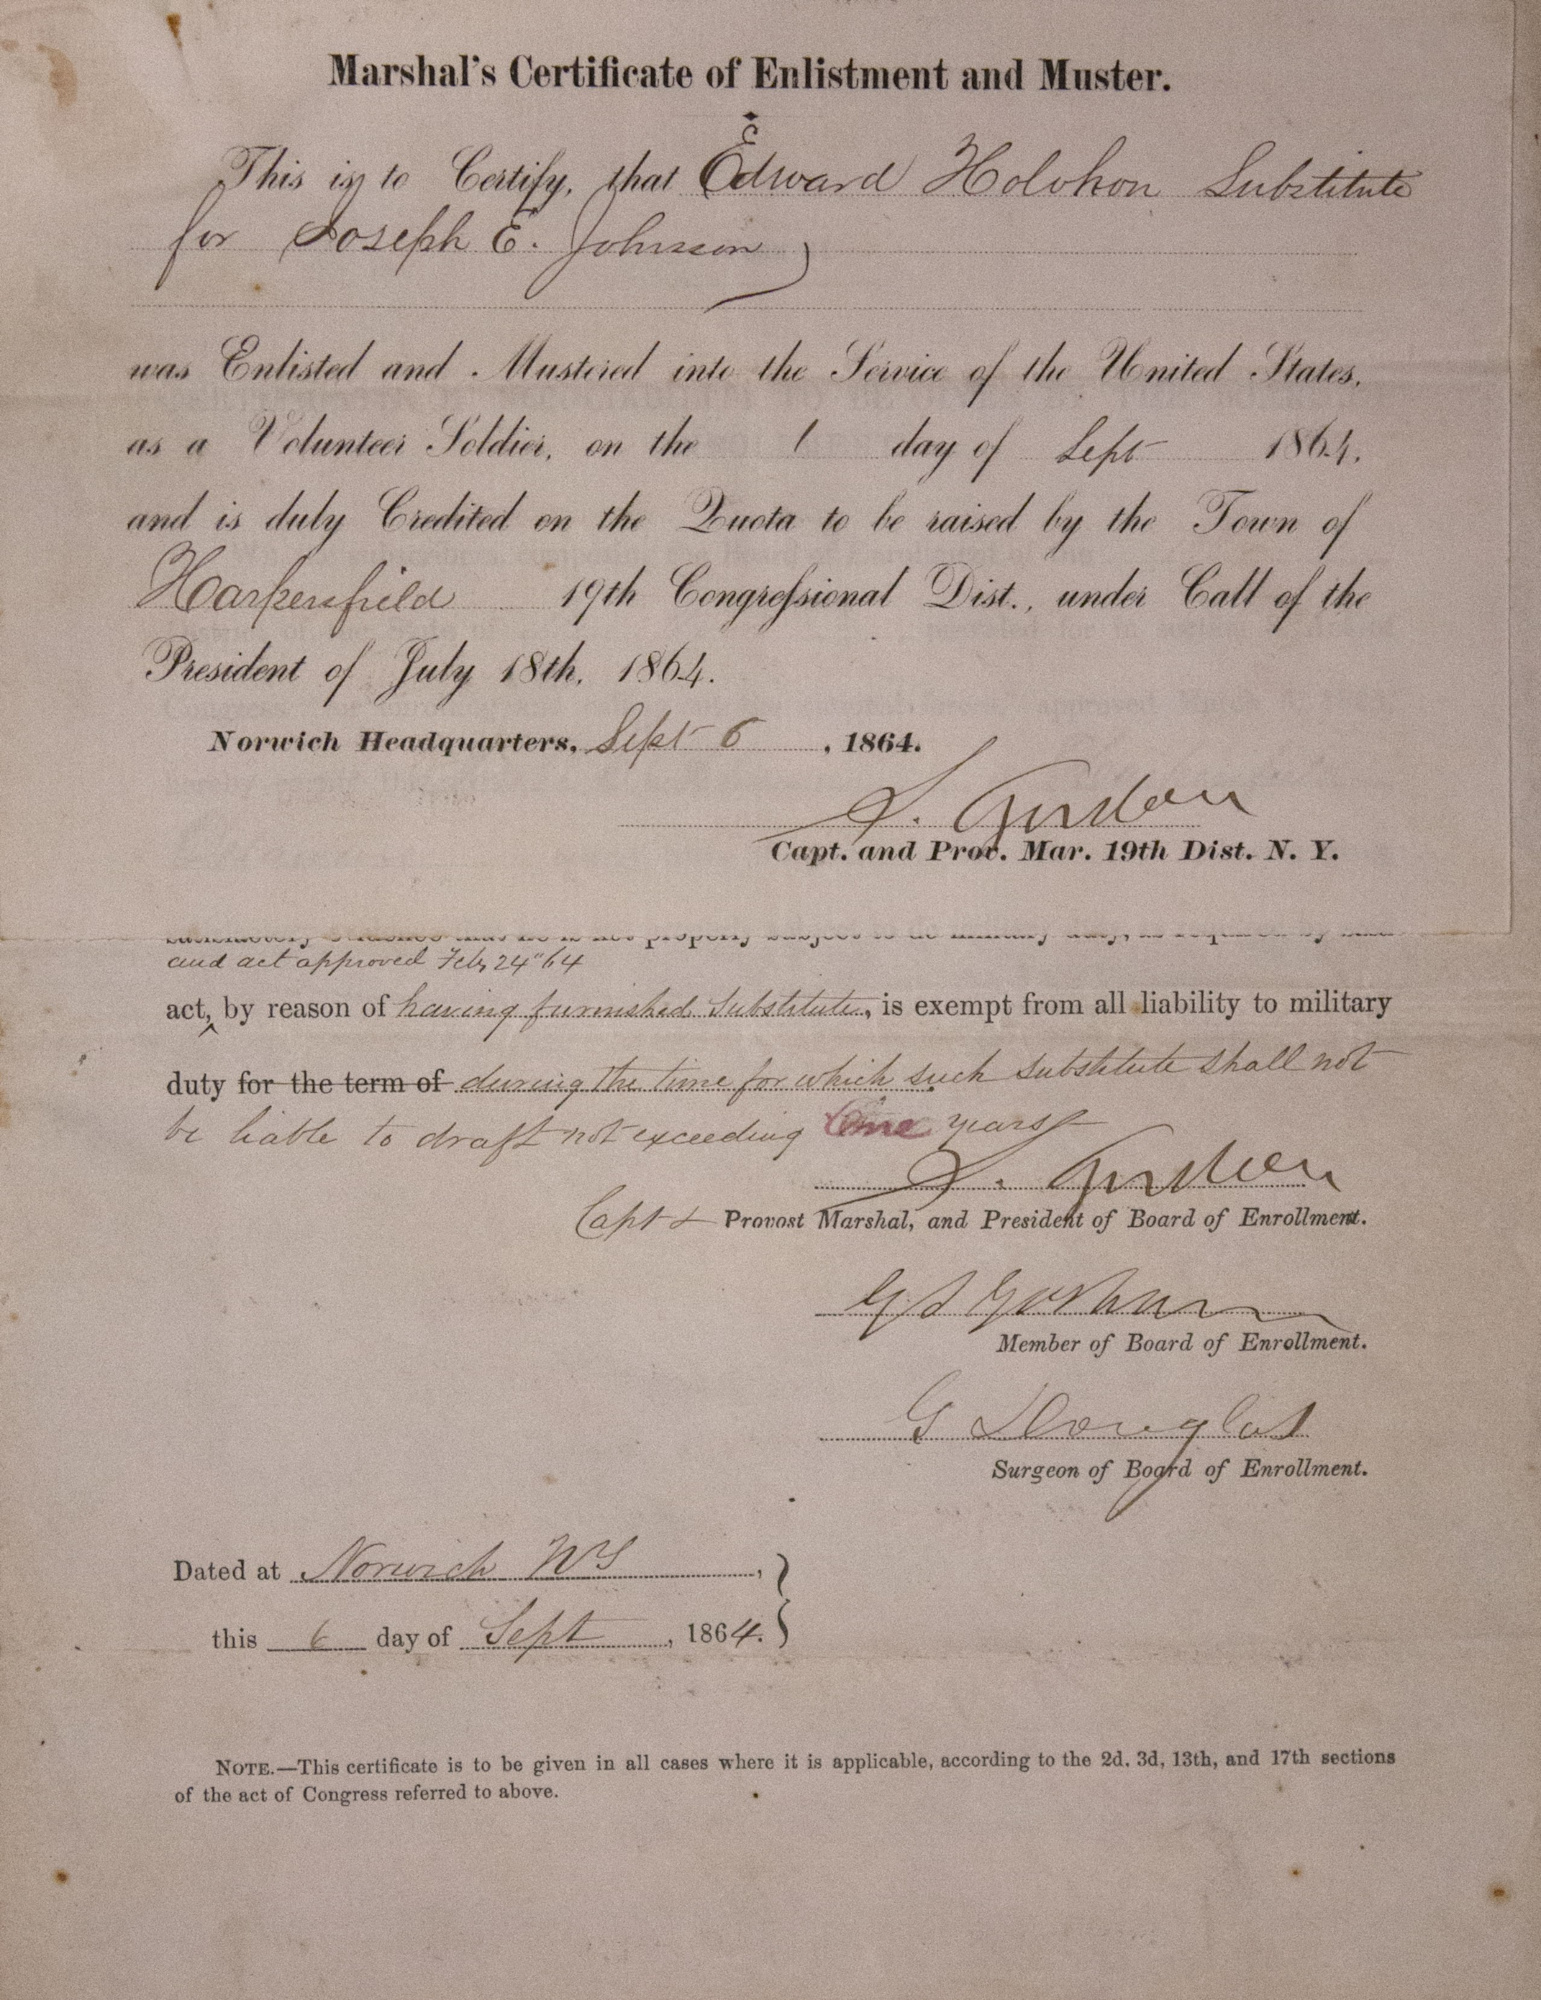 Marshal's Certificate of Enlistment and Muster.
This is to Certify, that Edward Holohon Substitute
for Joseph E. Johnson
was Enlisted and Mustered into the Service of the United States,
as a Volunteer Soldier, on the 1 day of Sept 1864,
and is duly Credited on the Quota to be raised by the Town of
Harpersfield 19th Congressional Dist., under Call of the
President of July 18th, 1864.
Norwich Headquarters, Sept 6, 1864.
S. Gordon
Capt. and Prov. Mar. 19th Dist. N. Y.
satisfactory evidence that he is not properly subject to do military duty, as required by said
and act approved Feby 24" 64
act, by reason of having furnished Substitute, is exempt from all liability to military
duty for the term of during the time for which such substitute shall not
be liable to draft not exceeding One years
S. Gordon
Capt & Provost Marshal, and President of Board of Enrollment.
G S Gorham
Member of Board of Enrollment.
G Douglas
Surgeon of Board of Enrollment.
Dated at Norwich NY,
this 6 day of Sept, 1864.
NOTE.—This certificate is to be given in all cases where it is applicable, according to the 2d, 3d, 13th, and 17th sections
of the act of Congress referred to above.